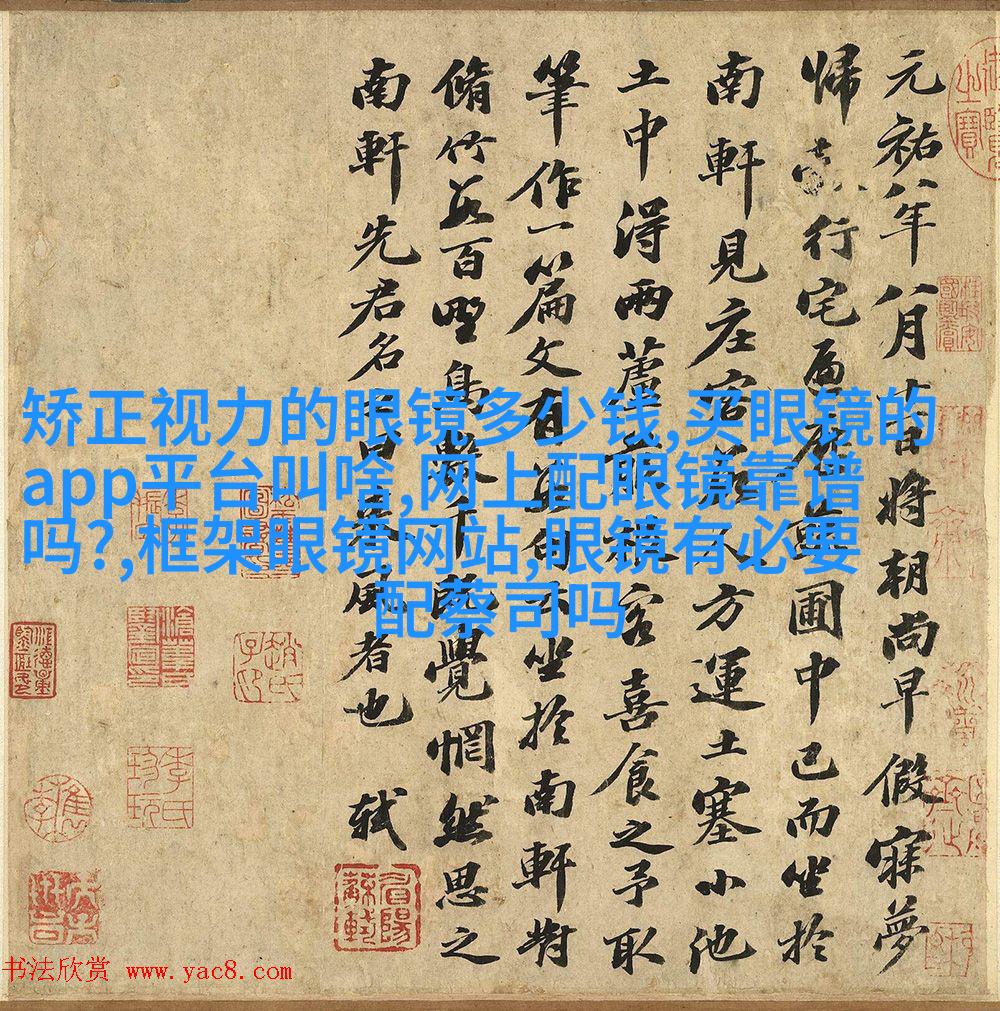 元祐八年八月十一日將朝尚早假寐夢
歸行宅遍歷蔬圃中已而坐於
南軒見莊客數人方運土塞小池
土中得兩蘆菔根客喜食之予取
筆作一篇文有數句云坐於南軒對
脩竹數百野鳥數千既覺惘然思之
南軒先君名之曰來風者也 軾
矫正视力的眼镜多少钱,买眼镜的
app平台叫啥,网上配眼镜靠谱
吗?,框架眼镜网站,眼镜有必要
配蔡司吗
书法欣赏 www.yac8.com